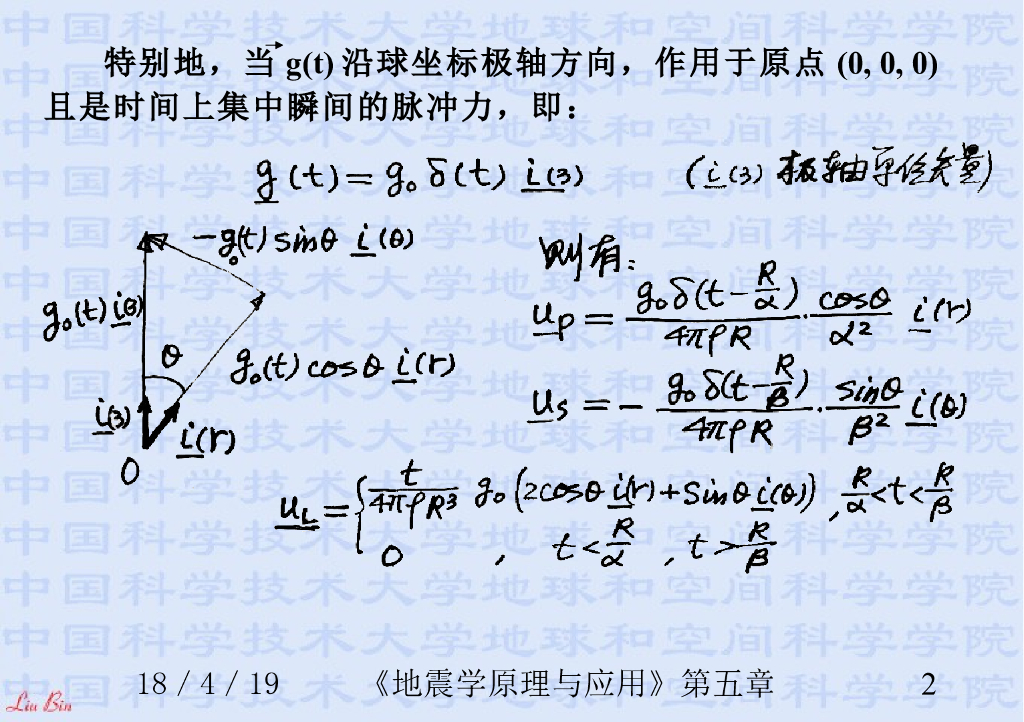 特别地，当 g(t) 沿球坐标极轴方向，作用于原点 (0, 0, 0)
且是时间上集中瞬间的脉冲力，即：
g(t) = g₀δ(t) i(3) (i(3) 极轴单位矢量)
-g₀(t) sinθ i(θ)
则有：
g₀(t) i(3)
u_P = g₀δ(t-R/α)/4πρR · cosθ/α² i(r)
θ
g₀(t) cosθ i(r)
u_S = - g₀δ(t-R/β)/4πρR · sinθ/β² i(θ)
i(3)
i(r)
O
u_L = { t/4πρR³ g₀(2cosθ i(r) + sinθ i(θ)), R/α < t < R/β
0, t < R/α, t > R/β
18 / 4 / 19 《地震学原理与应用》第五章 2
Liu Bin
中国科学技术大学地球和空间科学学院